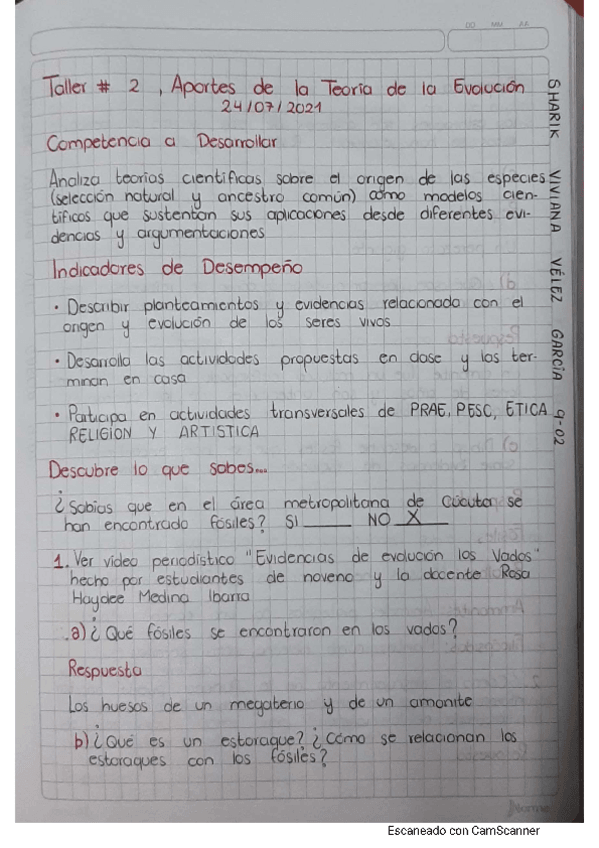 DD MM AA
Taller # 2 , Aportes de la Teoría de la Evolución
24/07/2021
Competencia a Desarrollar
Analiza teorías científicas sobre el origen de las especies
(selección natural y ancestro común) como modelos cien-
tíficos que sustentan sus aplicaciones desde diferentes evi-
dencias y argumentaciones
Indicadores de Desempeño
• Describir planteamientos y evidencias relacionada con el
origen y evolución de los seres vivos
• Desarrolla las actividades propuestas en clase y las ter-
minan en casa
• Participa en actividades transversales de PRAE, PESC, ETICA
RELIGION Y ARTISTICA
Descubre lo que sabes...
¿Sabías que en el área metropolitana de Cúcuta se
han encontrado fósiles? SI ____ NO X
1. Ver vídeo periodístico "Evidencias de evolución los Vados"
hecho por estudiantes de noveno y la docente Rosa
Haydee Medina Ibarra
a) ¿Qué fósiles se encontraron en los vados?
Respuesta
Los huesos de un megaterio y de un amonite
b) ¿Qué es un estoraque? ¿Cómo se relacionan los
estoraques con los fósiles?
SHARIK VIVIANA VÉLEZ GARCÍA 9-02
Norma
Escaneado con CamScanner